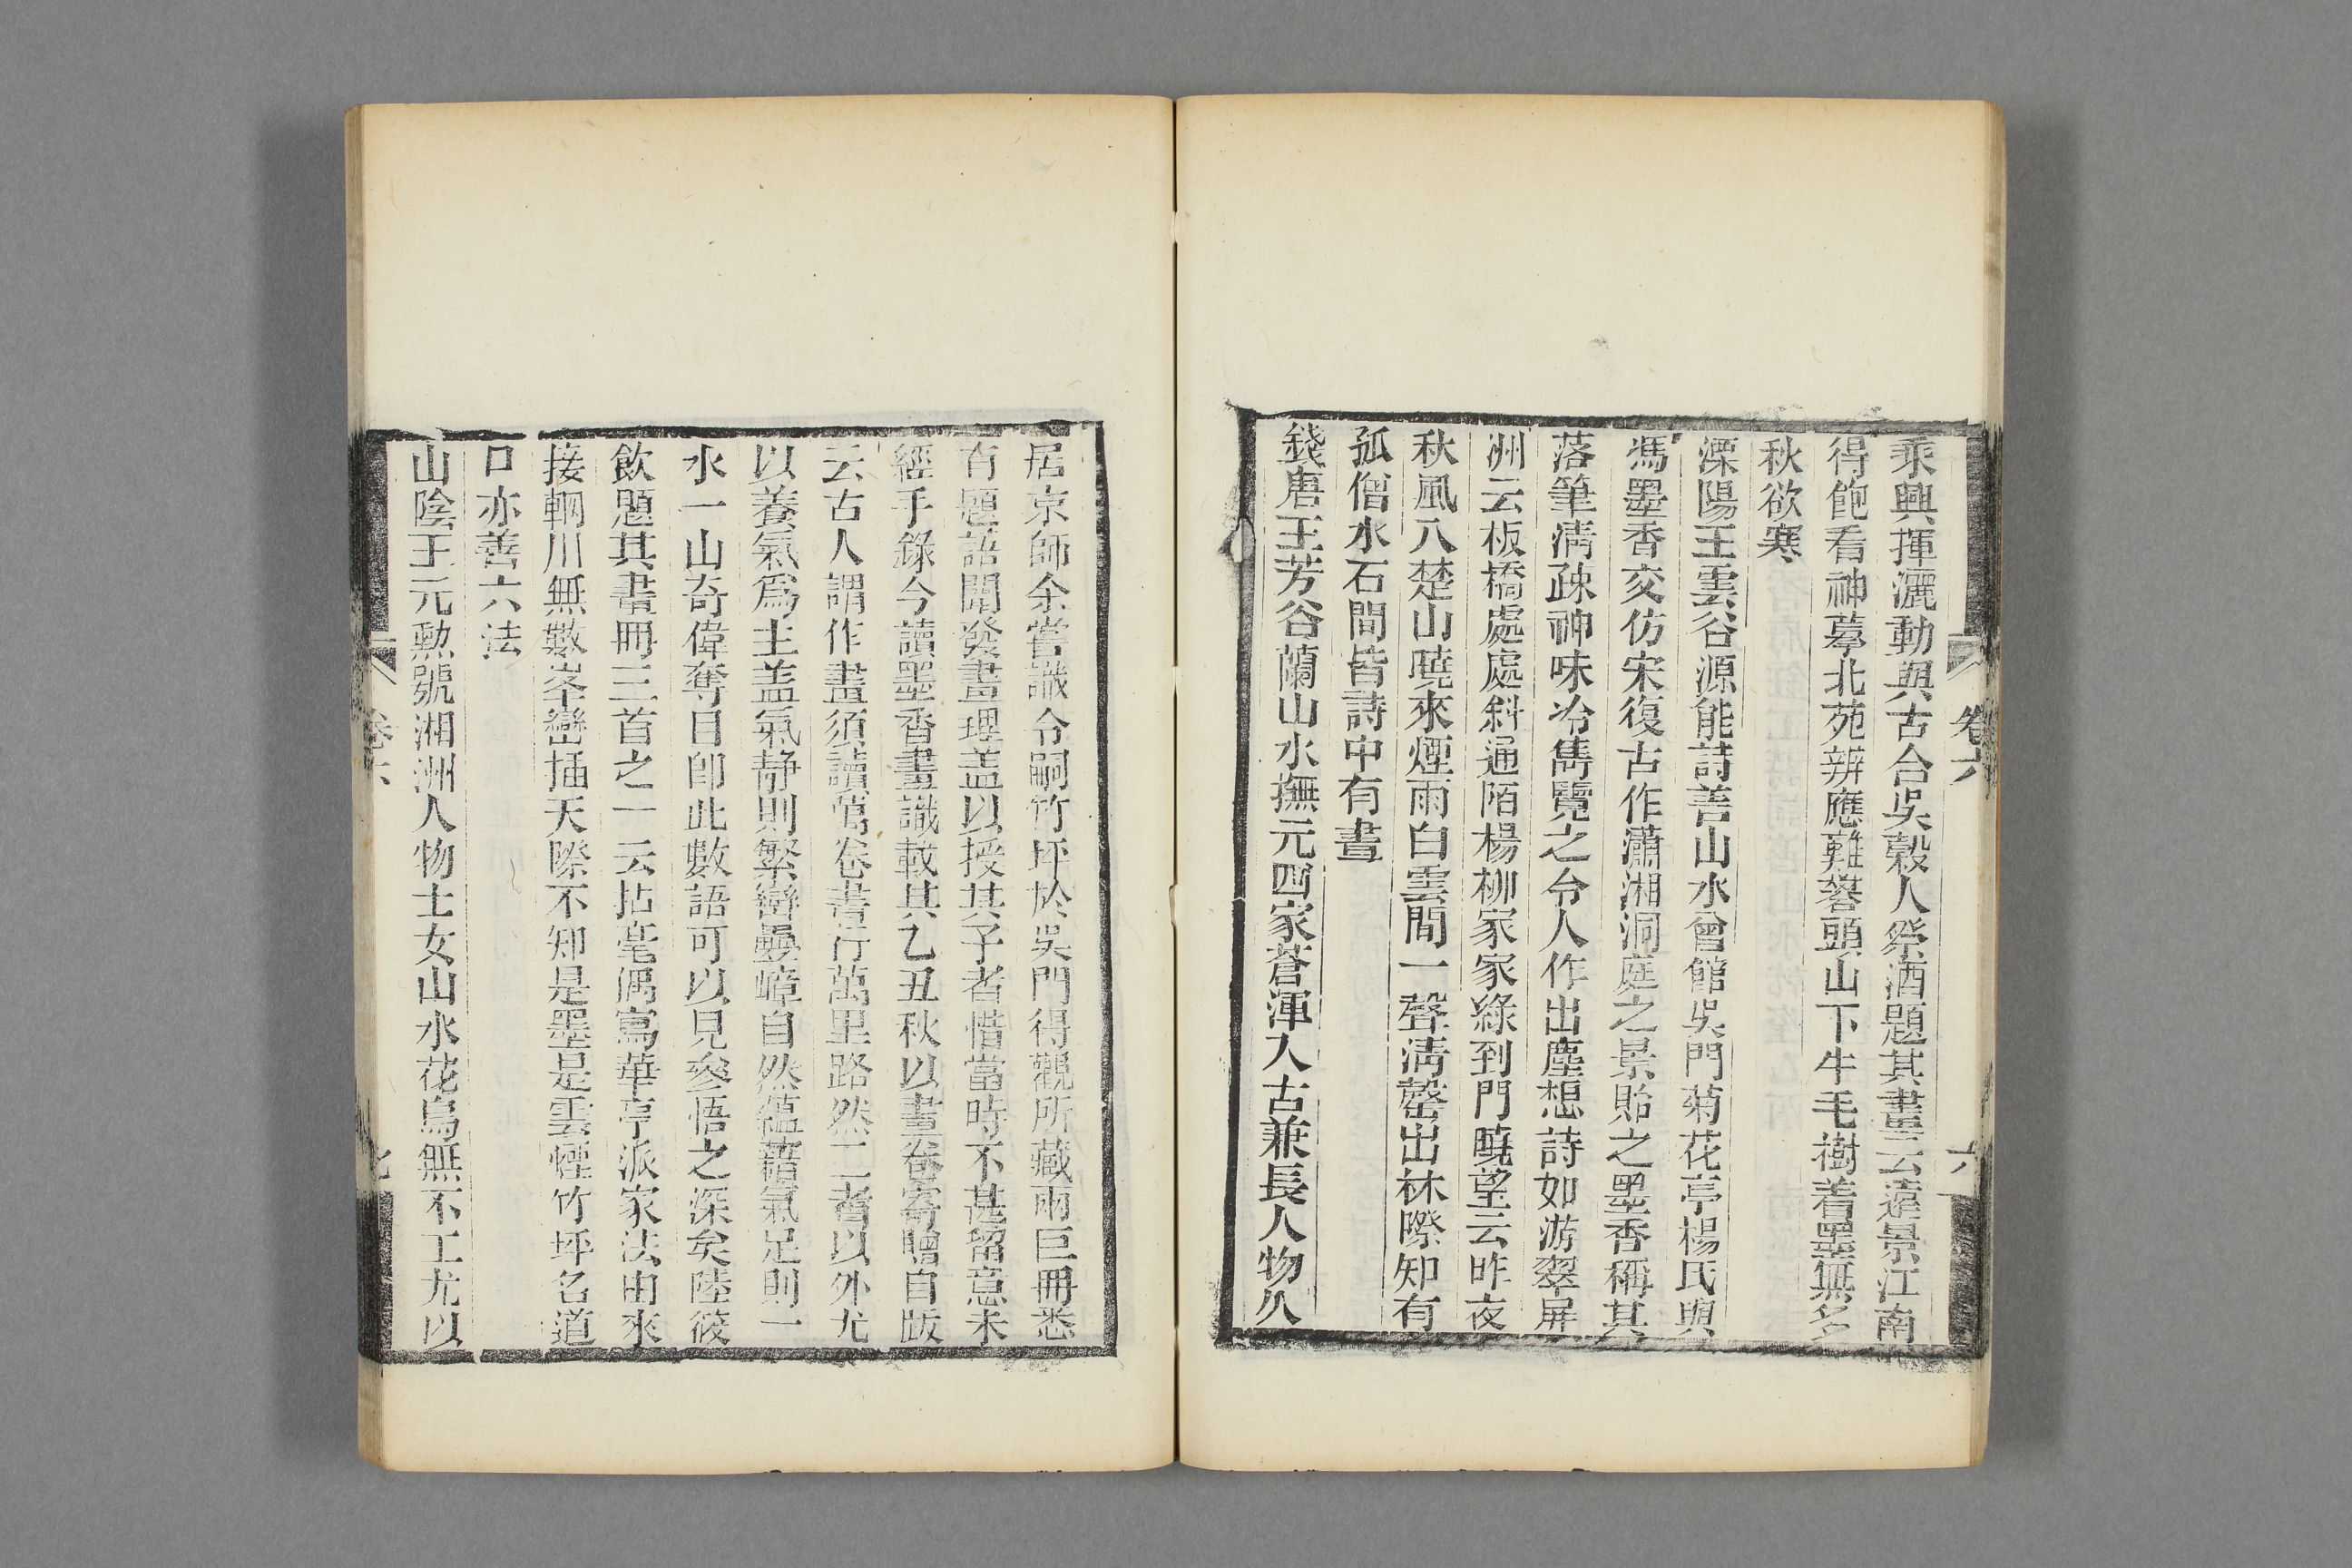 乘興揮灑動與古合吳穀人祭酒題其畫云遠景江南
得飽看神摹北苑辨應難礬頭山下牛毛樹着墨無多
秋欲寒
溧陽王雲谷源能詩善山水曾館吳門菊花亭楊氏與
馮墨香交仿宋復古作瀟湘洞庭之景貽之墨香稱其
落筆清疎神味冷雋覽之令人作出塵想詩如游翠屏
洲云板橋處處斜通陌楊柳家家綠到門曉望云昨夜
秋風入楚山曉來煙雨白雲間一聲清磬出林際知有
孤僧水石間皆詩中有畫
錢唐王芳谷蘭山水撫元四家蒼渾入古兼長人物久
卷六
六
居京師余嘗識令嗣竹坪於吳門得觀所藏兩巨冊悉
有題語闡發畫理盖以授其子者惜當時不甚留意未
經手錄今讀墨香畫識載其乙丑秋以畫卷寄贈自跋
云古人謂作畫須讀萬卷書行萬里路然二者以外尤
以養氣爲主盖氣静則繁巒疊嶂自然蘊藉氣足則一
水一山奇偉奪目卽此數語可以見參悟之深矣陸筱
飲題其畫冊三首之一云拈毫偶寫華亭派家法由來
接輞川無數峯巒插天際不知是墨是雲煙竹坪名道
口亦善六法
山陰王元勲號湘洲人物士女山水花鳥無不工尤以
卷六